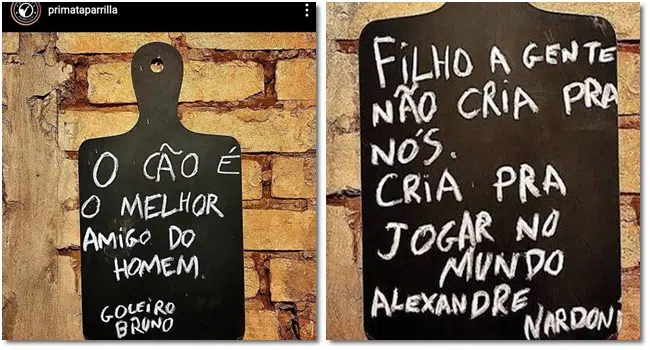 primataparrilla
O CÃO É
O MELHOR
AMIGO DO
HOMEM.
GOLEIRO
BRUNO
FILHO A GENTE
NÃO CRIA PRA
NÓS.
CRIA PRA
JOGAR NO
MUNDO
ALEXANDRE
NARDONI